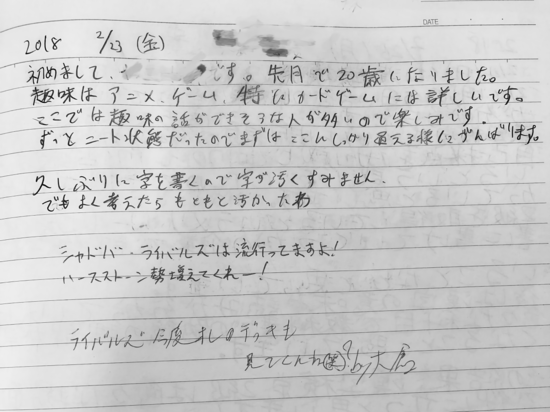 DATE
2018 2/23 (金)
初めまして、 です。先月で20歳になりました。
趣味はアニメ、ゲーム、特にカードゲームには詳しいです。
ここでは趣味の話ができそうな人が多いので楽しみです。
ずっとニート状態だったのでまずはここにしっかり通える様にがんばります。
久しぶりに字を書くので字が汚くすみません。
でもよく考えたらもともと汚かったわ
シャドバ・ライバルズは流行ってますよ!
ハースストーン勢増えてくれー!
ライバルズ今度オレのデッキも
見てくんね(笑)? by大